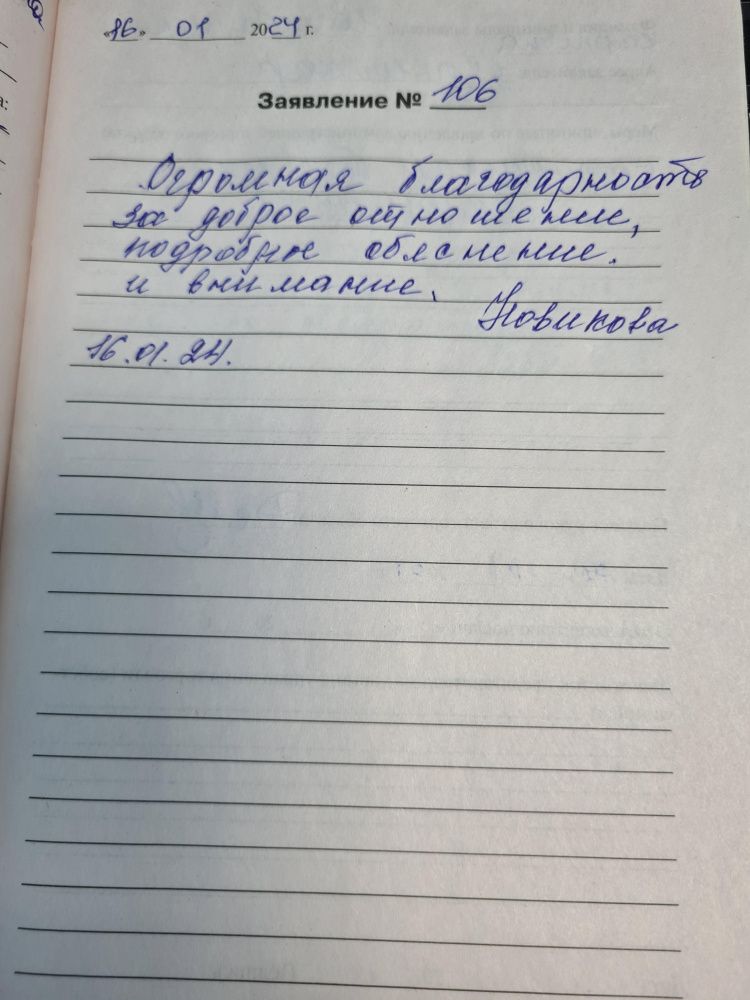 «16» 01 2024 г.
Заявление № 106
Огромная благодарность
за доброе отношение,
подробное обяснение.
и внимание.
Новикова
16.01.24.